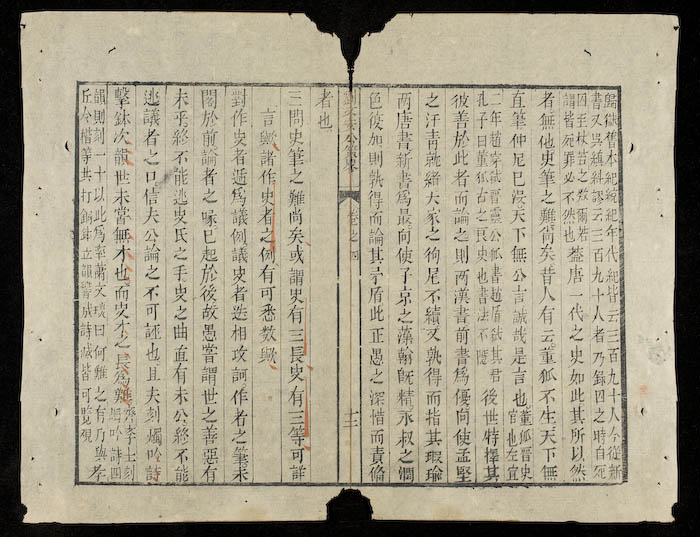 歸獄舊本紀統紀年代紀皆云三百九十人今從新
書又吳縝糾謬云三百九十人者乃錄囚之時自死
囚至杖笞之數爾若
謂皆死罪必不然也蓋唐一代之史如此其所以然
者無他史筆之難尚矣昔人有云董狐不生天下無
直筆仲尼已沒天下無公言誠哉是言也董狐晉史
官也左宣
二年趙穿弒晉靈公狐書趙盾弒其君
孔子曰董狐古之良史也書法不隱後世特擇其
彼善於此者而論之則兩漢書前書為優向使孟堅
之汗青就緒大家之狗尾不續又孰得而指其瑕瑜
兩唐書新書為最向使子京之藻翰既精永叔之潤
色復加則孰得而論其矛盾此正愚之深惜而責備
者也
卷之四
十三
三問史筆之難尚矣或謂史有三長史有三等可詳
言歟諸作史者之例有可悉數歟
對作史者遞為議例議史者迭相攻訶作者之筆未
閣於前論者之喙已起於後故愚嘗謂世之善惡有
未乎終不能逃史氏之手史之曲直有未公終不能
逃議者之口信夫公論之不可誣也且夫刻燭吟詩
擊鉢次韻世未嘗無才也而史才之長為難齊學士刻
燭吟詩四
韻則刻一寸以此為率蕭文琰曰何難之有乃與
丘令楷等共打銅鉢立韻響成詩滅皆可覽觀